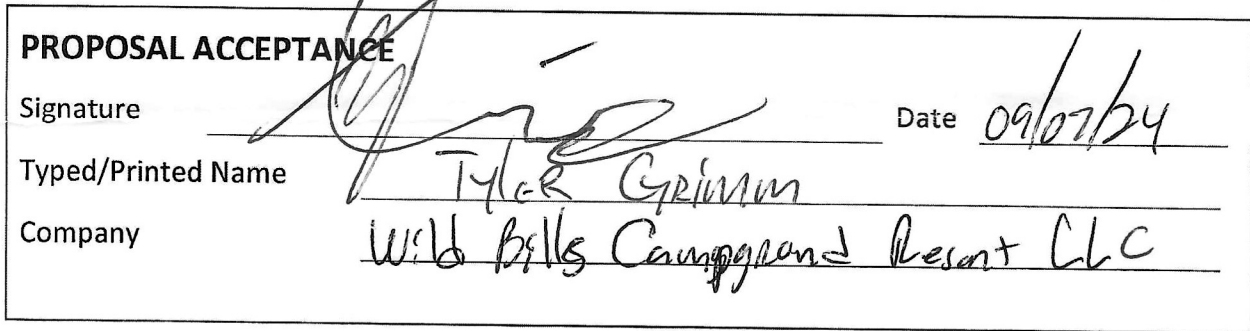 PROPOSAL ACCEPTANCE
Signature Date 09/07/24
Typed/Printed Name Tyler Grimm
Company Wild Bills Campground Resort LLC